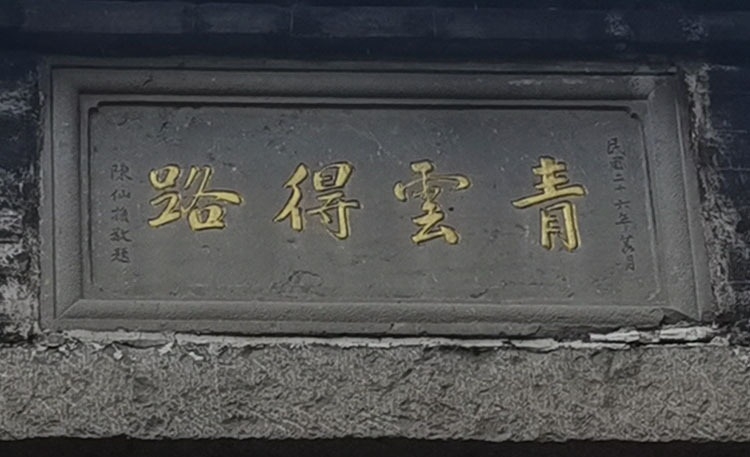 民國二十六年𫝆月
青雲得路
陳仙敬題